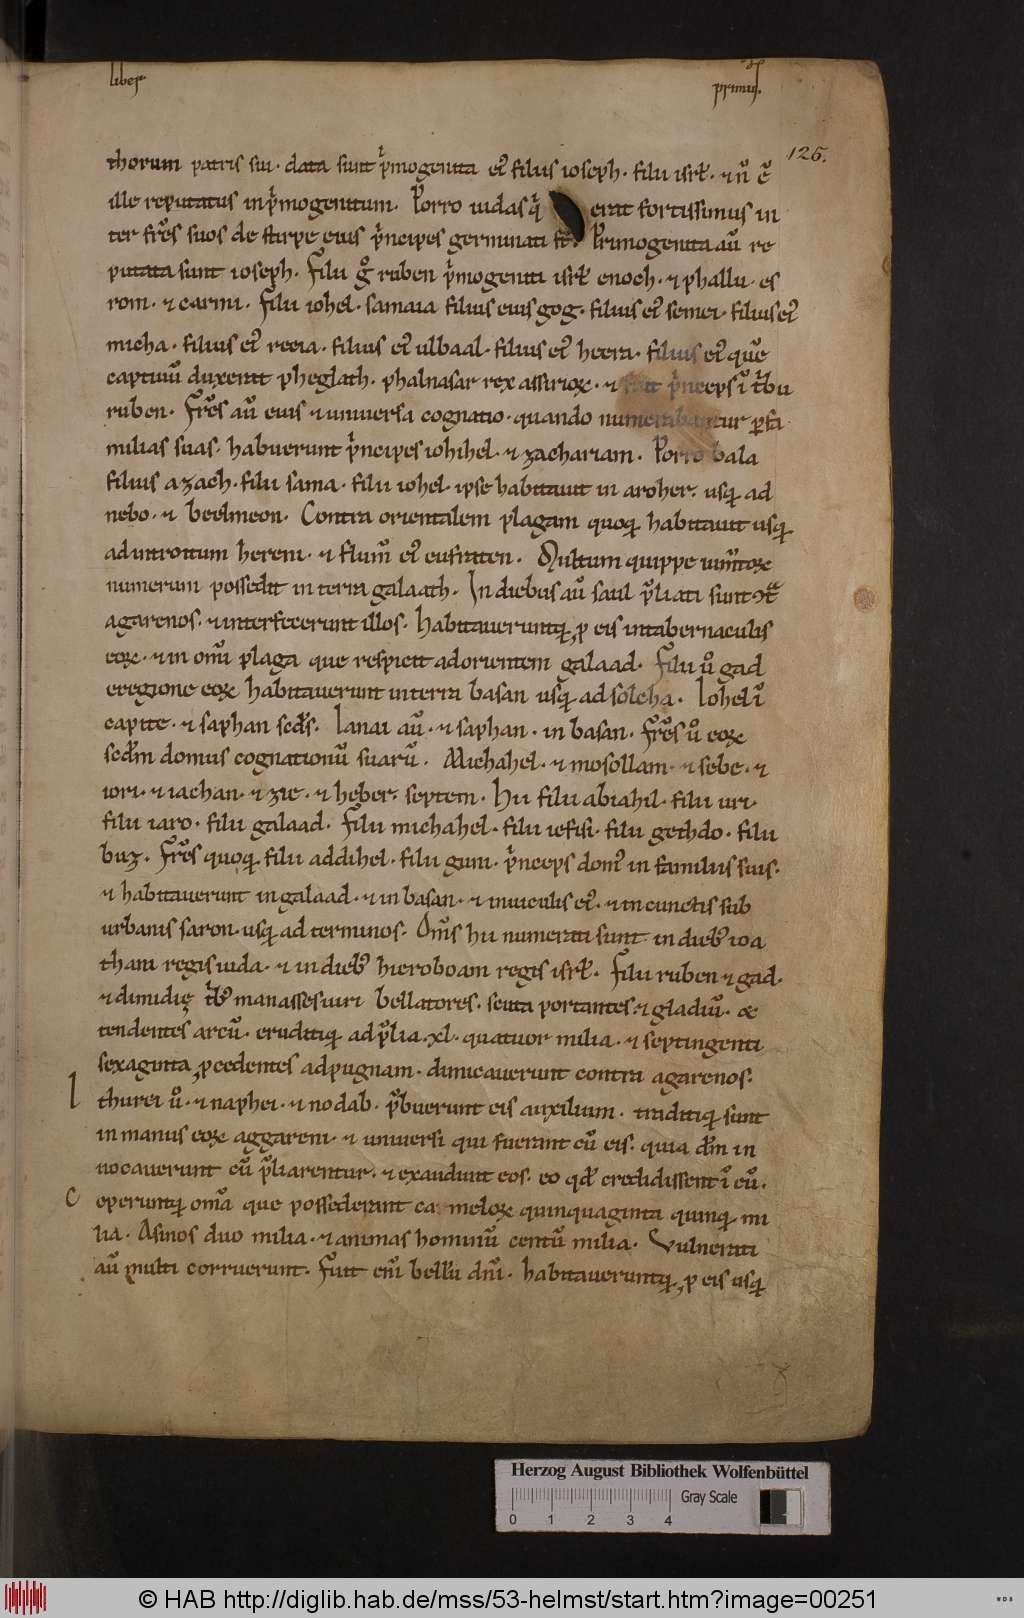 liber
primus.
125.
thorum patris sui · data sunt p̄mogenita eiꝰ filiis ioseph · filii isrł · ⁊ ñ ē
ille reputatus in p̄mogenitum · Porro iudas q̄ erat fortissimus in
ter fr̄es suos de stirpe eius p̄ncipes germinati sт̄ · Primogenita aū re
putata sunt ioseph · Filii g̊ ruben p̄mogeniti isrł enoch · ⁊ phallu · es
rom · ⁊ carmi · Filii iohel · samaia filius eius gog · filius eiꝰ semei · filius eiꝰ
micha · filius eiꝰ reeia · filius eiꝰ ulbaal · filius eiꝰ beera · filius eiꝰ quē
captiuū duxerat pheglath · phalnasar rex assirioꝝ · ⁊ fuit p̄nceps ī t̄bu
ruben · Fr̄es aū eius ⁊ uniuersa cognatio · quando numerabantur ꝑ fa
milias suas · habuerunt p̄ncipes iohihel · ⁊ zachariam · Porro bala
filius azach · filii sama · filii iohel · ipse habitauit in aroher · usq; ad
nebo · ⁊ beelmeon · Contra orientalem plagam quoq; habitauit usq;
ad introitum heremi · ⁊ flum̄ eiꝰ eufraten · Multum quippe ium̄toꝝ
numerum possedit in terra galaath · In diebus aū saul p̄liati sunt ꝯt̄
agarenos · ⁊ interfecerunt illos · habitaueruntq; p eis in tabernaculis
eoꝝ · ⁊ in om̄i plaga que respicit ad orientem galaad · Filii ů gad
e regione eoꝝ habitauerunt in terra basan usq; ad solcha · Iohel ī
capite · ⁊ saphan scd̄s · Ianai aū · ⁊ saphan · in basan · fr̄es ů eoꝝ
scd̄m domus cognationū suarū · Michahel · ⁊ mosollam · ⁊ sebe · ⁊
iori · ⁊ iachan · ⁊ zie · ⁊ heber · septem · Hii filii abiahil · filii uri ·
filii iaro · filii galaad · Filii michahel · filii iesisi · filii gethdo · filii
buz · Fr̄es quoq; filii addihel · filii guni · p̄nceps domꝰ in familiis suis ·
⁊ habitauerunt in galaad · ⁊ in basan · ⁊ in uiculis eiꝰ · ⁊ in cunctis sub
urbanis saron · usq; ad terminos · Om̄s hii numerati sunt in diebꝰ ioa
tham regis iuda · ⁊ in diebꝰ hieroboam regis isrł · Filii ruben ⁊ gad ·
⁊ dimidię t̄bꝰ manasses uiri bellatores · scuta portantes · ⁊ gladiū · &
tendentes arcū · eruditiq; ad p̄lia · xl · quatuor milia · ⁊ septingenti
sexaginta pcedentes ad pugnam · dimicauerunt contra agarenos ·
Ithurei ů · ⁊ naphei · ⁊ nodab · p̄buerunt eis auxilium · traditiq; sunt
in manus eoꝝ aggareni · ⁊ uniuersi qui fuerant cū eis · quia dn̄m in
uocauerunt cū p̄liarentur · ⁊ exaudiuit eos · eo qđ credidissent ī eū ·
Ceperuntq; om̄a que possederant ca meloꝝ quinquaginta quinq; mi
lia · Asinos duo milia · ⁊ animas hominū centū milia · Vulnerati
aū multi corruerunt · Fuit eni̅ bellū dn̄i · habitaueruntq; p eis usq;
Herzog August Bibliothek Wolfenbüttel
Gray Scale
0 1 2 3 4
© HAB http://diglib.hab.de/mss/53-helmst/start.htm?image=00251